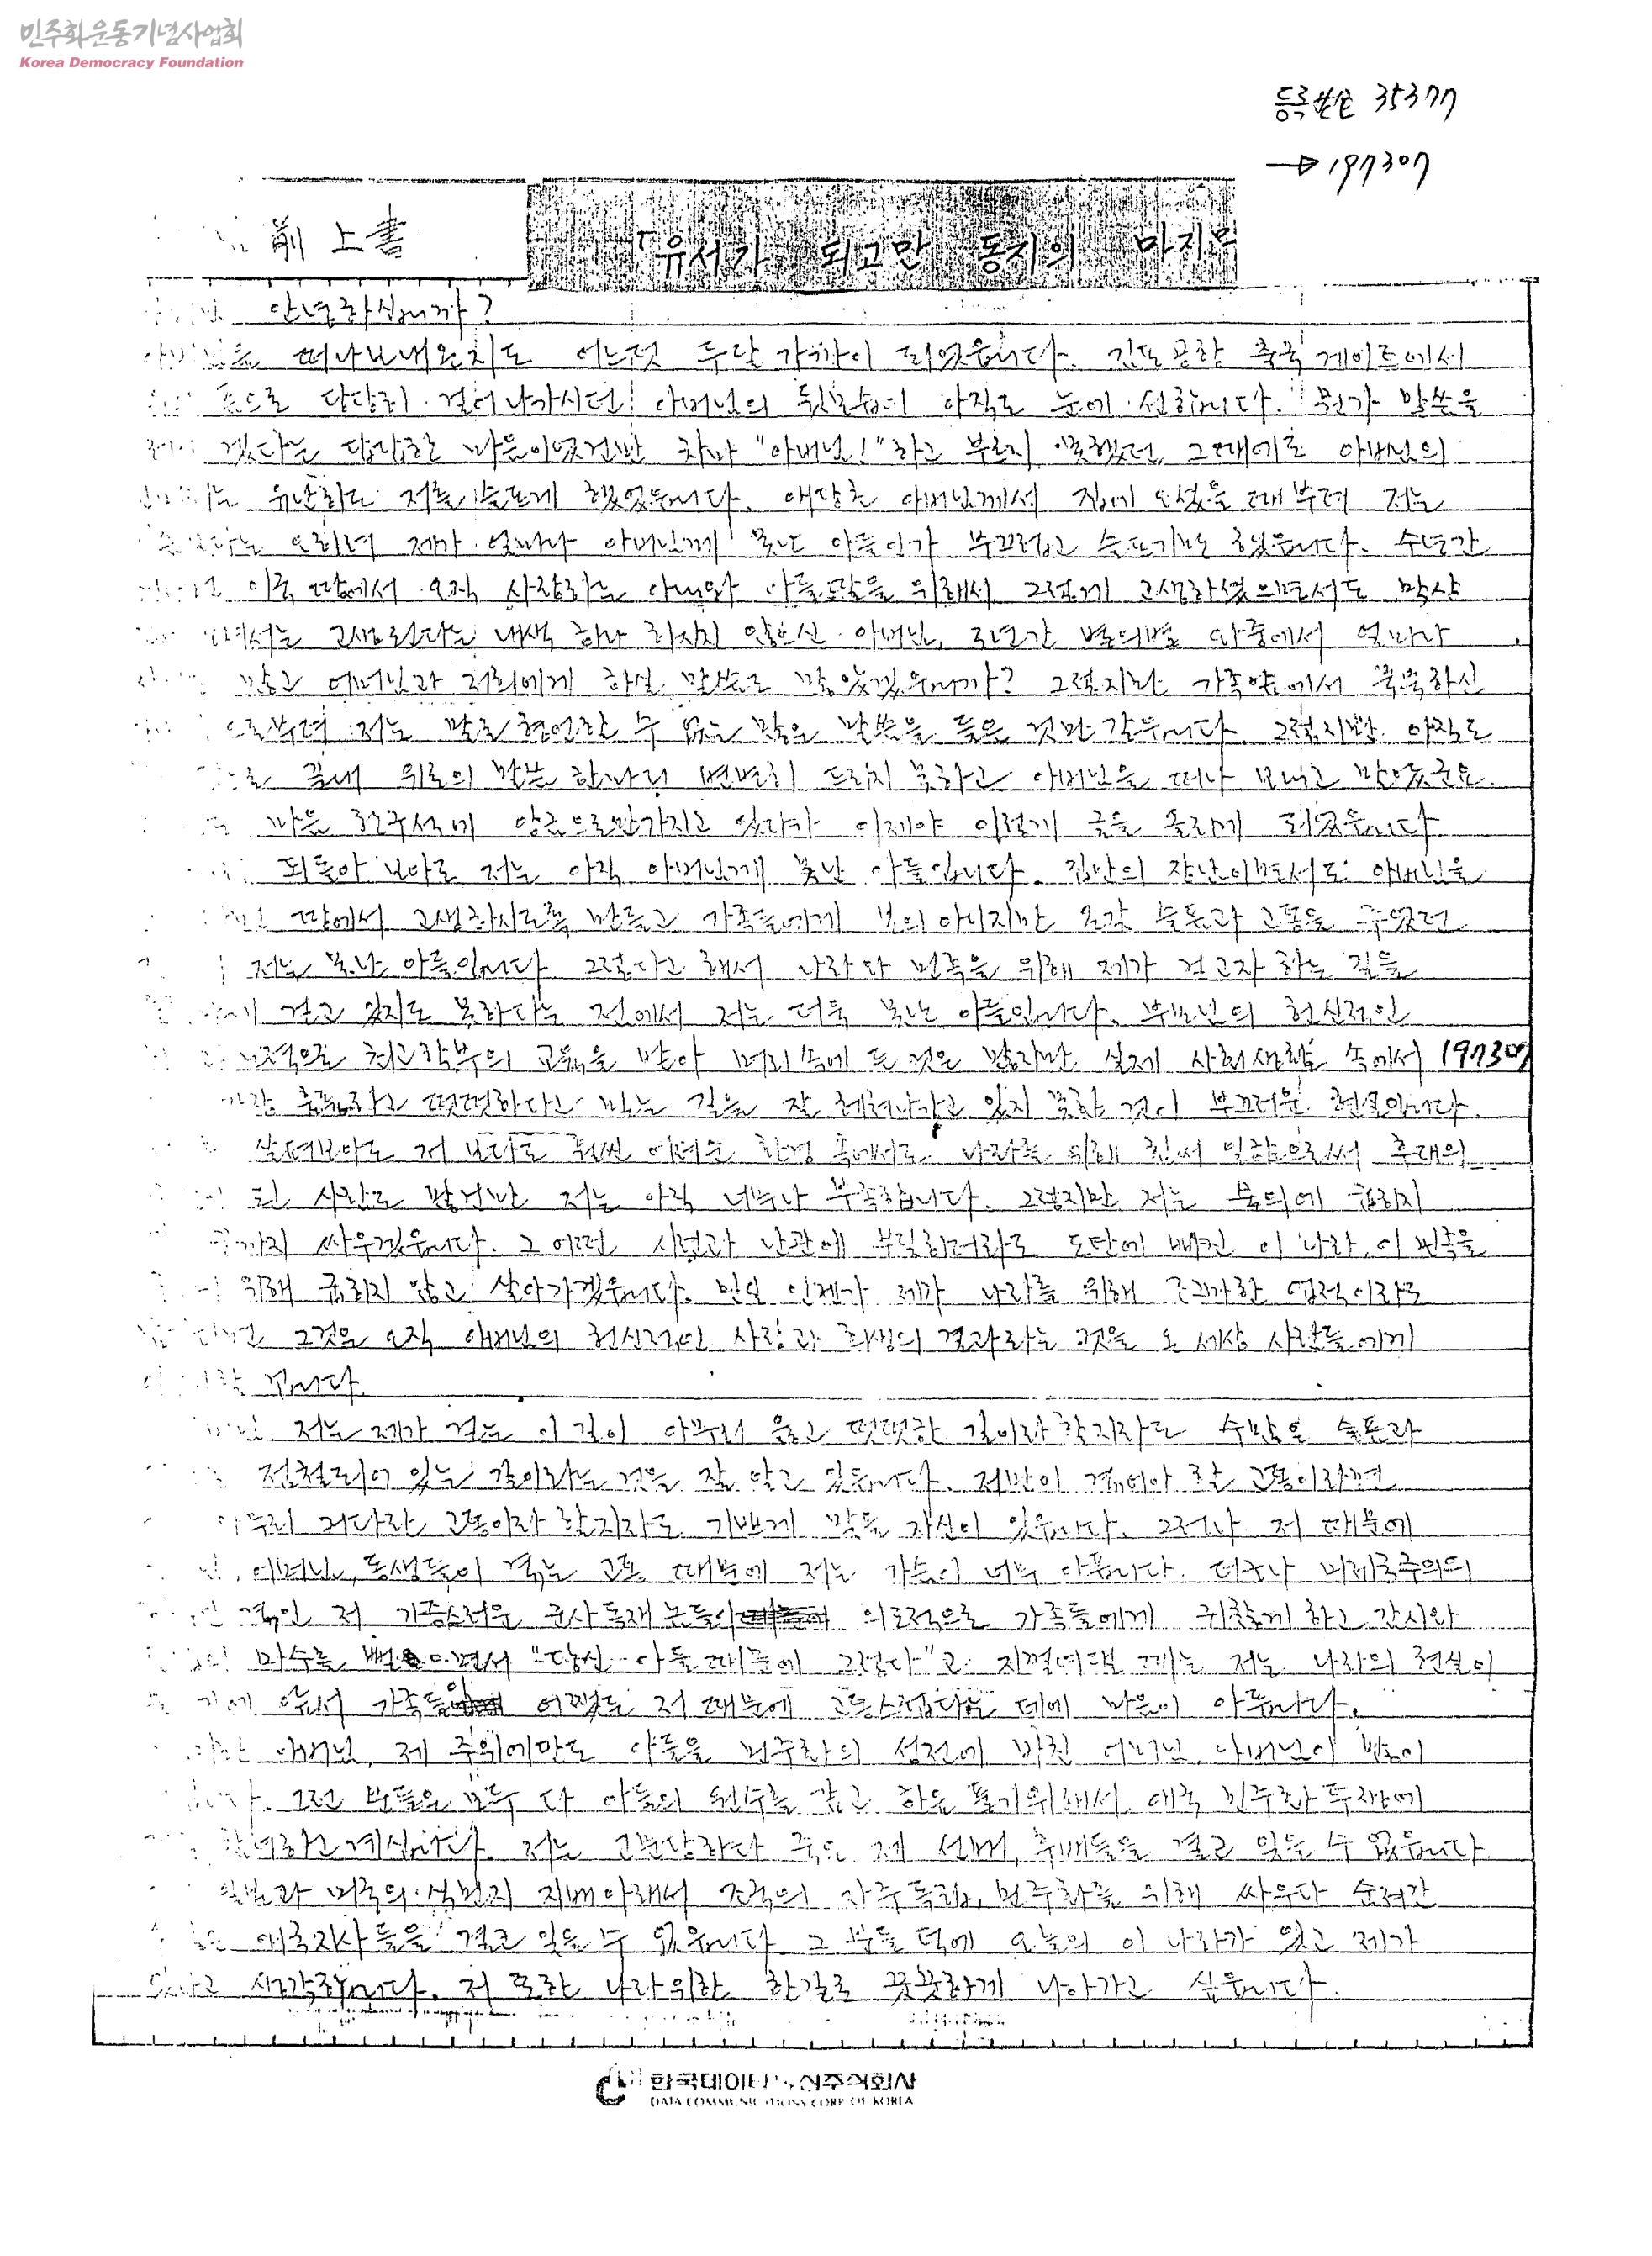 민주화운동기념사업회
Korea Democracy Foundation
등록번호 35377
→ 197307
前上書
「유서가 되고만 동지의 마지막
안녕하십니까?
떠나보내온지도 어느덧 두달 가까이 되었읍니다. 김포공항 출국 게이트에서
으로 당당히 걸어나가시던 아버님의 뒷모습이 아직도 눈에 선합니다. 뭔가 말씀을
겠다는 답답한 마음이었건만 차마 "아버님!"하고 부르지 못했던 그때에도 아버님의
유난히도 저를 슬프게 했었읍니다. 애당초 아버님께서 집에 오셨을 때부터 저는
오히려 제가 얼마나 아버님께 못난 아들인가 부끄럽고 슬프기만 했읍니다. 수년간
이국 땅에서 오직 사랑하는 아내와 아들딸을 위해서 그렇게 고생하셨으면서도 막상
고생했다는 내색 하나 하시지 않으신 아버님, 3년간 별의별 와중에서 얼마나
많고 어머님과 저희에게 하실 말씀도 많았겠읍니까? 그렇지만 가족앞에서 묵묵하신
으로부터 저는 말로 형언할 수 없는 많은 말씀을 들은 것만 같읍니다. 그렇지만 아직도
끝내 위로의 말씀 한마디 변변히 드리지 못하고 아버님을 떠나 보내고 말았군요.
마음 한구석에 앙금으로만 가지고 있다가 이제야 이렇게 글을 올리게 되었읍니다
되돌아 보아도 저는 아직 아버님께 못난 아들입니다. 집안의 장남이면서도 아버님을
땅에서 고생하시도록 만들고 가족들에게 본의 아니지만 온갖 슬픔과 고통을 주었던
저는 못난 아들입니다 그렇다고 해서 나라와 민족을 위해 제가 걷고자 하는 길을
걷고 있지도 못하다는 점에서 저는 더욱 못난 아들입니다. 부모님의 헌신적인
으로 최고학부의 교육을 받아 머리속에 든 것은 많지만 실제 사회생활 속에서 197307
훌륭하고 떳떳하다고 믿는 길을 잘 헤쳐나가고 있지 못한 것이 부끄러운 현실입니다.
살펴보아도 저 보다도 훨씬 어려운 환경 속에서도 나라를 위해 힘써 일함으로써 후대의
된 사람도 많건만 저는 아직 너무나 부족합니다. 그렇지만 저는 불의에 굽히지
끝까지 싸우겠읍니다. 그 어떤 시련과 난관에 부딪히더라도 도탄에 빠진 이 나라, 이 민족을
위해 굽히지 않고 살아가겠읍니다. 만일 언젠가 제가 나라를 위해 조그마한 업적이라도
그것은 오직 아버님의 헌신적인 사랑과 희생의 결과라는 것을 온 세상 사람들에게
겁니다.
저는 제가 걷는 이 길이 아무리 옳고 떳떳한 길이라 할지라도 수많은 슬픔과
점철되어 있는 길이라는 것을 잘 알고 있읍니다. 저만이 겪어야 할 고통이라면
아무리 커다란 고통이라 할지라도 기쁘게 맞을 자신이 있읍니다. 그러나 저 때문에
어머님, 동생들이 겪는 고통 때문에 저는 가슴이 너무 아픕니다. 더구나 미제국주의의
저 가증스러운 군사독재 놈들이 의도적으로 가족들에게 귀찮게 하고 감시와
마수를 뻗으면서 "당신 아들때문에 그렇다"고 지껄여댈 때는 저는 나라의 현실이
앞서 가족들이 어쨌든 저 때문에 고통스럽다는 데에 마음이 아픕니다.
아버님, 제 주위에만도 아들을 민주화의 성전에 바친 어머님, 아버님이 많이
그런 분들은 모두 다 아들의 원수를 갚고 한을 풀기위해서 애국 민주화 투쟁에
참여하고 계십니다. 저는 고문당하다 죽은 제 선배, 후배들을 결코 잊을 수 없읍니다
일본과 미국의 식민지 지배 아래서 조국의 자주독립, 민주화를 위해 싸우다 숨져간
애국지사들을 결코 잊을 수 없읍니다 그 분들 덕에 오늘의 이 나라가 있고 제가
있다고 생각합니다. 저 또한 나라위한 한길로 꿋꿋하게 나아가고 싶읍니다.
한국데이타통신주식회사
DATA COMMUNICATIONS CORP. OF KOREA